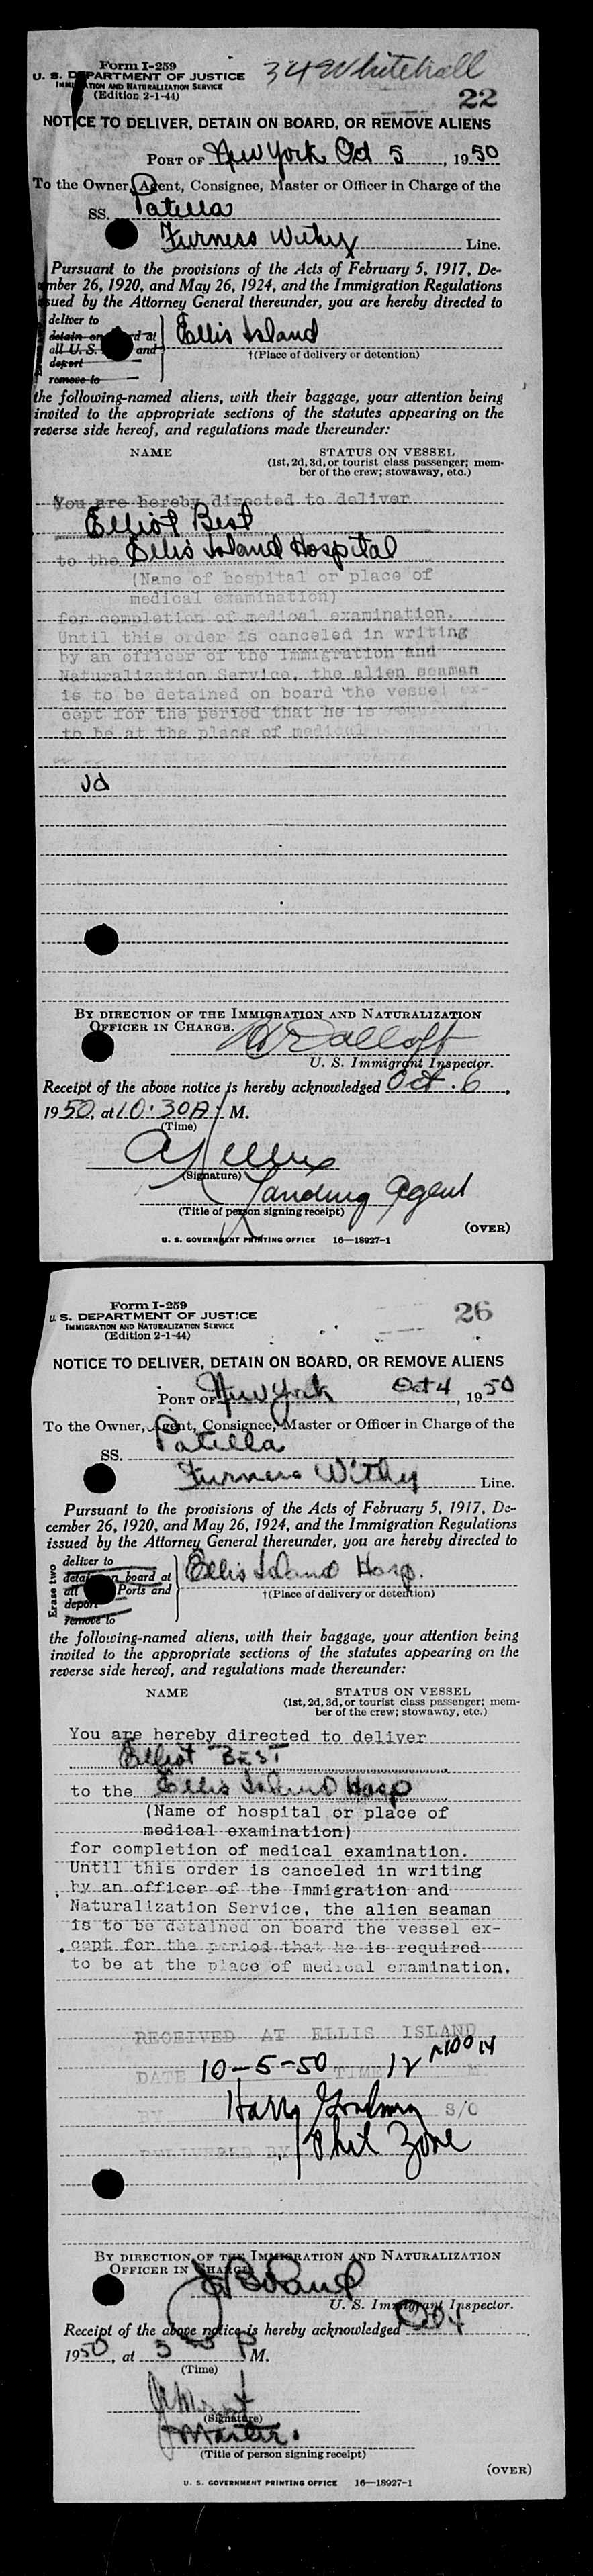 Form I-259
34 Whitehall
U. S. DEPARTMENT OF JUSTICE
IMMIGRATION AND NATURALIZATION SERVICE
(Edition 2-1-44)
22
NOTICE TO DELIVER, DETAIN ON BOARD, OR REMOVE ALIENS
PORT OF New York Oct 5, 1950
To the Owner, Agent, Consignee, Master or Officer in Charge of the
SS. Patella
Furness Withy Line.
Pursuant to the provisions of the Acts of February 5, 1917, De-
cember 26, 1920, and May 26, 1924, and the Immigration Regulations
issued by the Attorney General thereunder, you are hereby directed to
deliver to
detain on board at
all U. S. and
deport
remove to
Ellis Island
†(Place of delivery or detention)
the following-named aliens, with their baggage, your attention being
invited to the appropriate sections of the statutes appearing on the
reverse side hereof, and regulations made thereunder:
NAME STATUS ON VESSEL
(1st, 2d, 3d, or tourist class passenger; mem-
ber of the crew; stowaway, etc.)
You are hereby directed to deliver
Elliot Best
to the Ellis Island Hospital
(Name of hospital or place of
medical examination)
for completion of medical examination.
Until this order is canceled in writing
by an officer of the Immigration and
Naturalization Service, the alien seaman
is to be detained on board the vessel ex-
cept for the period that he is required
to be at the place of medical
BY DIRECTION OF THE IMMIGRATION AND NATURALIZATION
OFFICER IN CHARGE.
U. S. Immigrant Inspector.
Receipt of the above notice is hereby acknowledged Oct. 6,
1950, at 10:30 A. M.
(Time)
(Signature)
Landing Agent
(Title of person signing receipt)
(OVER)
U. S. GOVERNMENT PRINTING OFFICE 16—18927-1
Form I-259
U. S. DEPARTMENT OF JUSTICE
IMMIGRATION AND NATURALIZATION SERVICE
(Edition 2-1-44)
26
NOTICE TO DELIVER, DETAIN ON BOARD, OR REMOVE ALIENS
PORT OF New York Oct 4, 1950
To the Owner, Agent, Consignee, Master or Officer in Charge of the
SS. Patella
Furness Withy Line.
Pursuant to the provisions of the Acts of February 5, 1917, De-
cember 26, 1920, and May 26, 1924, and the Immigration Regulations
issued by the Attorney General thereunder, you are hereby directed to
Erase two
deliver to
detain on board at
all Ports and
deport
remove to
Ellis Island Hosp.
†(Place of delivery or detention)
the following-named aliens, with their baggage, your attention being
invited to the appropriate sections of the statutes appearing on the
reverse side hereof, and regulations made thereunder:
NAME STATUS ON VESSEL
(1st, 2d, 3d, or tourist class passenger; mem-
ber of the crew; stowaway, etc.)
You are hereby directed to deliver
Elliot BEST
to the Ellis Island Hosp
(Name of hospital or place of
medical examination)
for completion of medical examination.
Until this order is canceled in writing
by an officer of the Immigration and
Naturalization Service, the alien seaman
is to be detained on board the vessel ex-
cept for the period that he is required
to be at the place of medical examination.
RECEIVED AT ELLIS ISLAND
DATE 10-5-50 TIME 12 M
BY Harry S/O
DELIVERED BY
BY DIRECTION OF THE IMMIGRATION AND NATURALIZATION
OFFICER IN CHARGE.
U. S. Immigrant Inspector.
Receipt of the above notice is hereby acknowledged Oct 4
1950, at P M.
(Time)
(Signature)
Master.
(Title of person signing receipt)
(OVER)
U. S. GOVERNMENT PRINTING OFFICE 16—18927-1